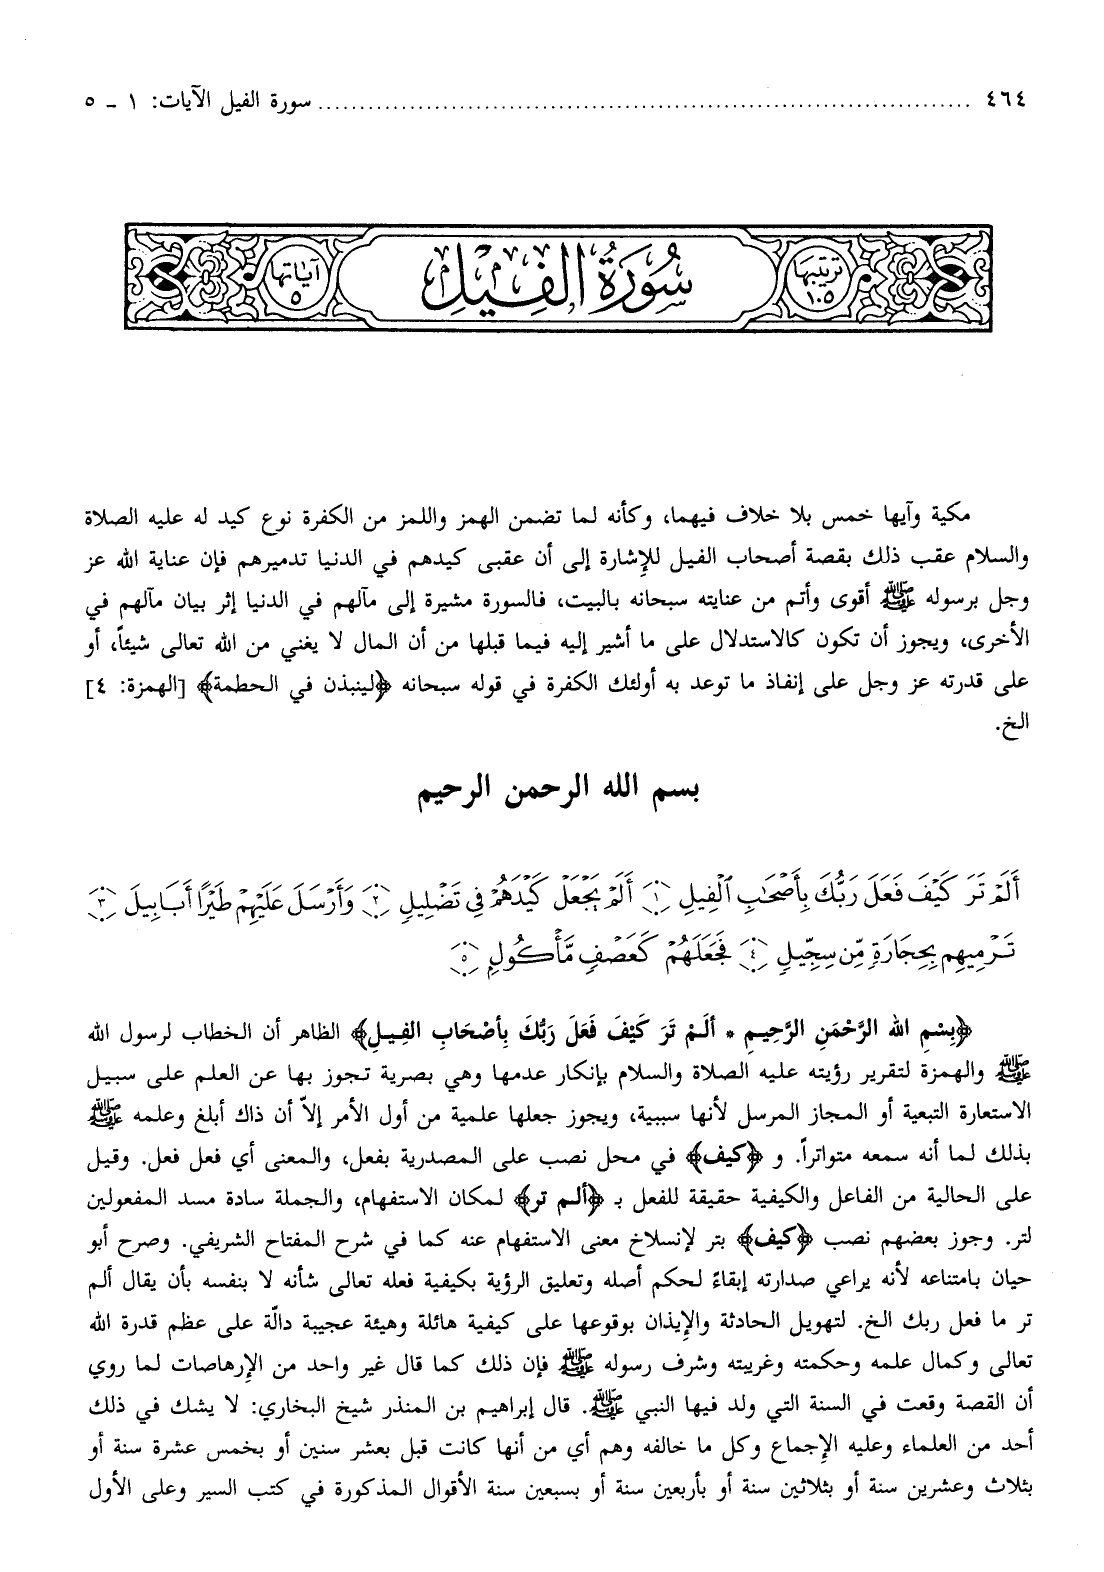 ٤٦٤ ........................................................................ سورة الفيل الآيات: ١ ـ ٥
ترتيبها ١٠٥ سُورَةُ الفِيل آياتها ٥
مكية وآيها خمس بلا خلاف فيهما، وكأنه لما تضمن الهمز واللمز من الكفرة نوع كيد له عليه الصلاة
والسلام عقب ذلك بقصة أصحاب الفيل للإشارة إلى أن عقبى كيدهم في الدنيا تدميرهم فإن عناية الله عز
وجل برسوله ﷺ أقوى وأتم من عنايته سبحانه بالبيت، فالسورة مشيرة إلى مآلهم في الدنيا إثر بيان مآلهم في
الأخرى، ويجوز أن تكون كالاستدلال على ما أشير إليه فيما قبلها من أن المال لا يغني من الله تعالى شيئاً، أو
على قدرته عز وجل على إنفاذ ما توعد به أولئك الكفرة في قوله سبحانه ﴿لينبذن في الحطمة﴾ [الهمزة: ٤]
الخ.
بسم الله الرحمن الرحيم
أَلَمْ تَرَ كَيْفَ فَعَلَ رَبُّكَ بِأَصْحَٰبِ ٱلْفِيلِ ١ أَلَمْ يَجْعَلْ كَيْدَهُمْ فِى تَضْلِيلٍ ٢ وَأَرْسَلَ عَلَيْهِمْ طَيْرًا أَبَابِيلَ ٣
تَرْمِيهِم بِحِجَارَةٍ مِّن سِجِّيلٍ ٤ فَجَعَلَهُمْ كَعَصْفٍ مَّأْكُولٍ ٥
﴿بِسْمِ الله الرَّحْمَنِ الرَّحِيمِ * ألَمْ تَرَ كَيْفَ فَعَلَ رَبُّكَ بِأصْحَابِ الفِيلِ﴾ الظاهر أن الخطاب لرسول الله
ﷺ والهمزة لتقرير رؤيته عليه الصلاة والسلام بإنكار عدمها وهي بصرية تجوز بها عن العلم على سبيل
الاستعارة التبعية أو المجاز المرسل لأنها سببية، ويجوز جعلها علمية من أول الأمر إلاّ أن ذاك أبلغ وعلمه ﷺ
بذلك لما أنه سمعه متواتراً. و ﴿كيف﴾ في محل نصب على المصدرية بفعل، والمعنى أي فعل فعل. وقيل
على الحالية من الفاعل والكيفية حقيقة للفعل بـ ﴿ألم تر﴾ لمكان الاستفهام، والجملة سادة مسد المفعولين
لتر. وجوز بعضهم نصب ﴿كيف﴾ بتر لإنسلاخ معنى الاستفهام عنه كما في شرح المفتاح الشريفي. وصرح أبو
حيان بامتناعه لأنه يراعي صدارته إبقاءً لحكم أصله وتعليق الرؤية بكيفية فعله تعالى شأنه لا بنفسه بأن يقال ألم
تر ما فعل ربك الخ. لتهويل الحادثة والإيذان بوقوعها على كيفية هائلة وهيئة عجيبة دالّة على عظم قدرة الله
تعالى وكمال علمه وحكمته وغريبته وشرف رسوله ﷺ فإن ذلك كما قال غير واحد من الإرهاصات لما روي
أن القصة وقعت في السنة التي ولد فيها النبي ﷺ. قال إبراهيم بن المنذر شيخ البخاري: لا يشك في ذلك
أحد من العلماء وعليه الإجماع وكل ما خالفه وهم أي من أنها كانت قبل بعشر سنين أو بخمس عشرة سنة أو
بثلاث وعشرين سنة أو بثلاثين سنة أو بأربعين سنة أو بسبعين سنة الأقوال المذكورة في كتب السير وعلى الأول